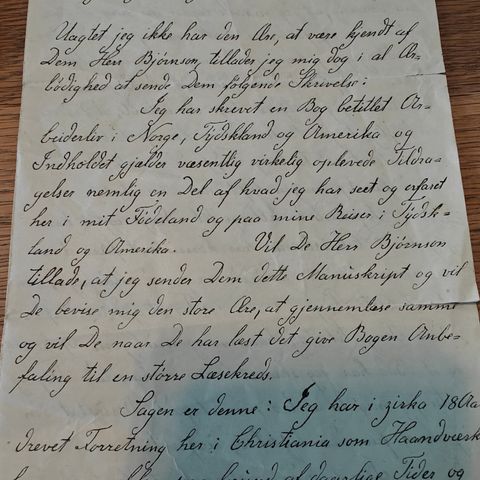 Uagtet jeg ikke har den Ære, at være kjendt af
Dem Herr Bjørnson, tillader jeg mig dog i al Ær-
bødighed at sende Dem følgende Skrivelse:
Jeg har skrevet en Bog betitlet Ar-
beiderliv i Norge, Tydskland og Amerika og
Indholdet gjælder væsentlig virkelig oplevede Tildra-
gelser nemlig en Del af hvad jeg har seet og erfaret
her i mit Fødeland og paa mine Reiser i Tydsk-
land og Amerika. Vil De Herr Bjørnson
tillade, at jeg sender Dem dette Manuskript og vil
De bevise mig den store Ære, at gjennemlæse samme
og vil De naar De har læst det give Bogen Anbe-
faling til en større Læsekreds.
Sagen er denne: Jeg har i zirka 18 Aa
drevet Forretning her i Christiania som Haandværk
af daarlige Tider og